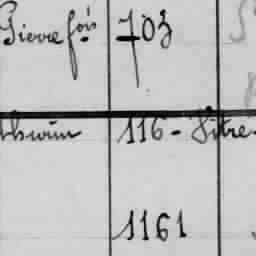 Pierre fois 703
thurin 116 - Titre
1161